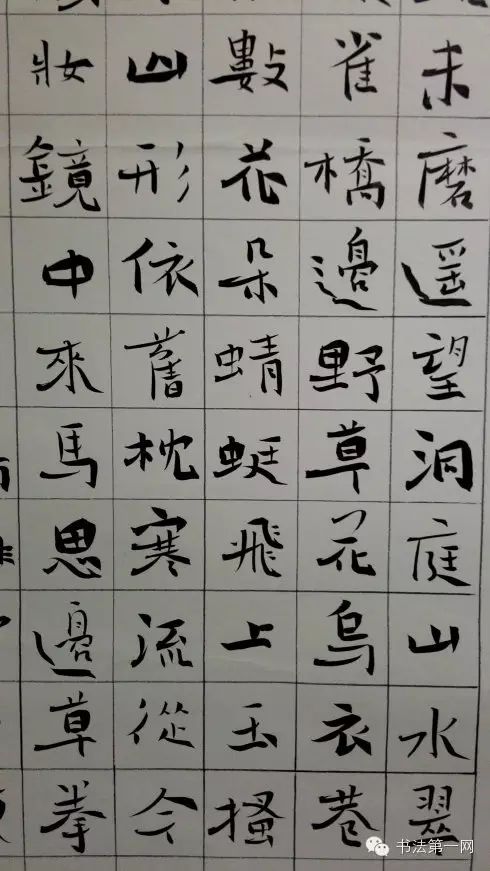 未磨遥望洞庭山水翠
雀橋邊野草花烏衣巷
數花朵蜻蜓飛上玉搔
山形依舊枕寒流從今
妝鏡中來馬思邊草拳
书法第一网